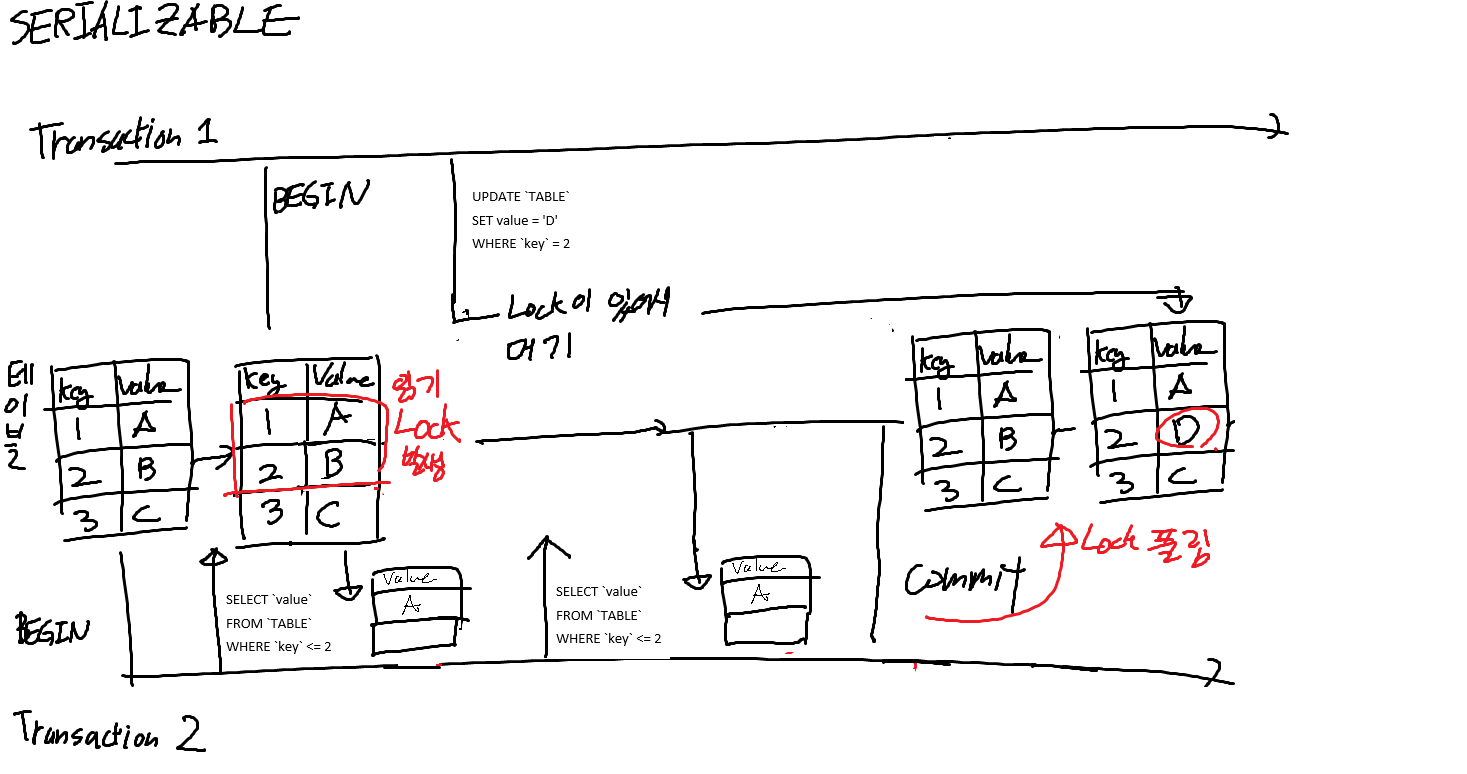 SERIALIZABLE
Transaction 1
BEGIN
UPDATE `TABLE`
SET value = 'D'
WHERE `key` = 2
Lock이 있어서
대기
테이블
key Value
1 A
2 B
3 C
key Value
1 A
2 B
3 C
읽기
Lock
발생
key Value
1 A
2 B
3 C
key Value
1 A
2 D
3 C
Lock 풀림
Commit
BEGIN
SELECT `value`
FROM `TABLE`
WHERE `key` <= 2
Value
A
SELECT `value`
FROM `TABLE`
WHERE `key` <= 2
Value
A
Transaction 2